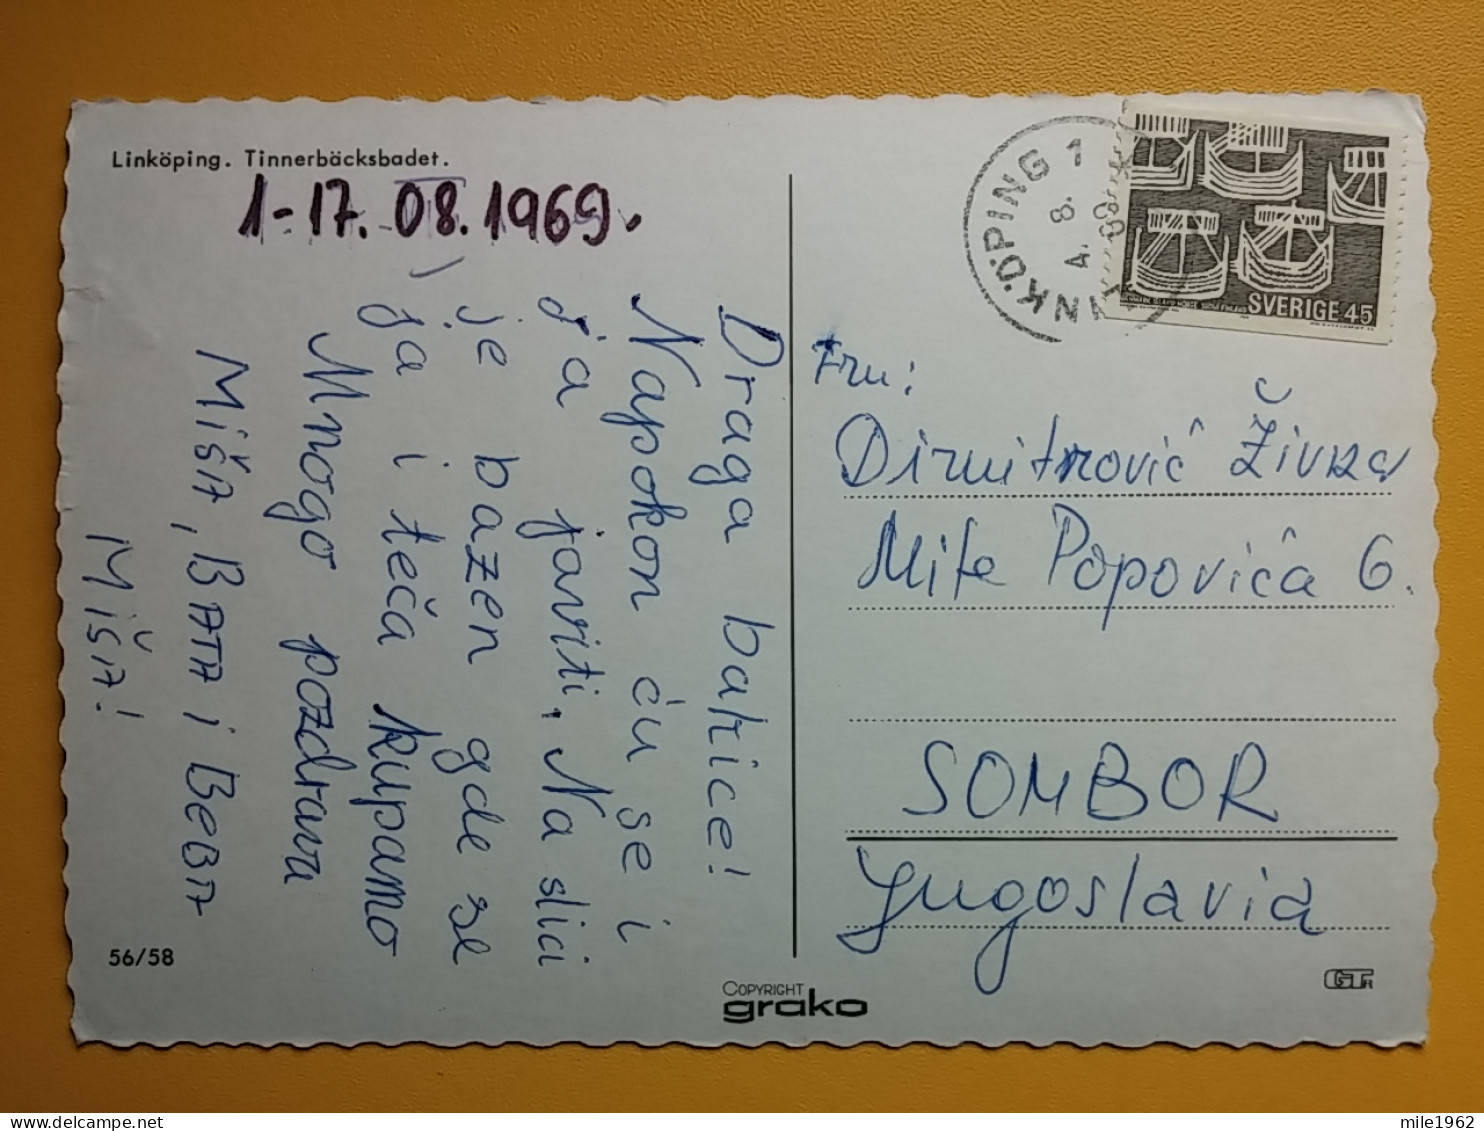 Linköping. Tinnerbäcksbadet.
1-17. 08. 1969.
Draga bakice!
Napokon ću se i
ja javiti. Na slici
je bazen gde se
ja i teča kupamo
Mnogo pozdrava
MIŠA, BATA I BEBA
MIŠA!
56/58
COPYRIGHT
grako
LINKÖPING 1
8. 69
SVERIGE 45
Fru:
Dimitrović Živka
Mite Popovića 6.
SOMBOR
Jugoslavia
mile1962